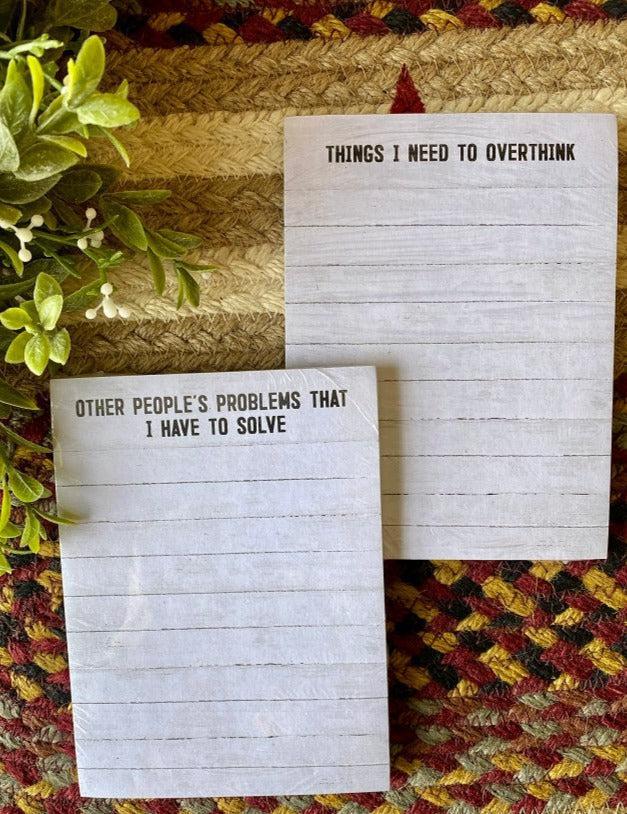 THINGS I NEED TO OVERTHINK
OTHER PEOPLE'S PROBLEMS THAT
I HAVE TO SOLVE